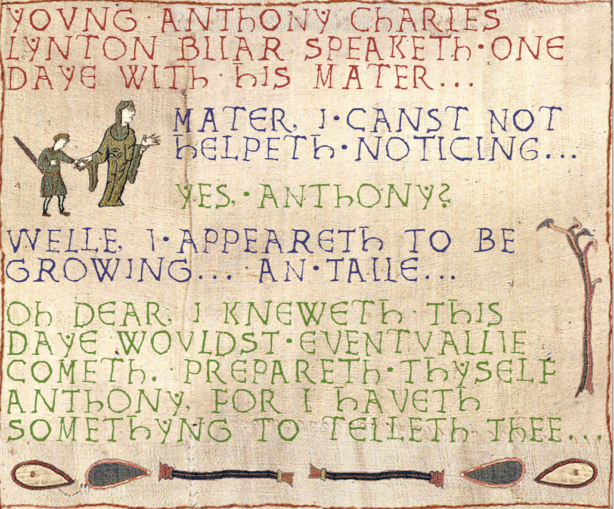 YOVNG ANTHONY CHARLES
LYNTON BLIAR SPEAKETH·ONE
DAYE WITH·HIS MATER...
MATER, I·CANST NOT
HELPETH·NOTICING...
YES,·ANTHONY?
WELLE, I·APPEARETH TO BE
GROWING... AN·TAILE...
OH DEAR, I KNEWETH THIS
DAYE WOVLDST·EVENTVALLIE
COMETH. PREPARETH·THYSELF
ANTHONY, FOR I HAVETH
SOMETHYNG TO TELLETH THEE...